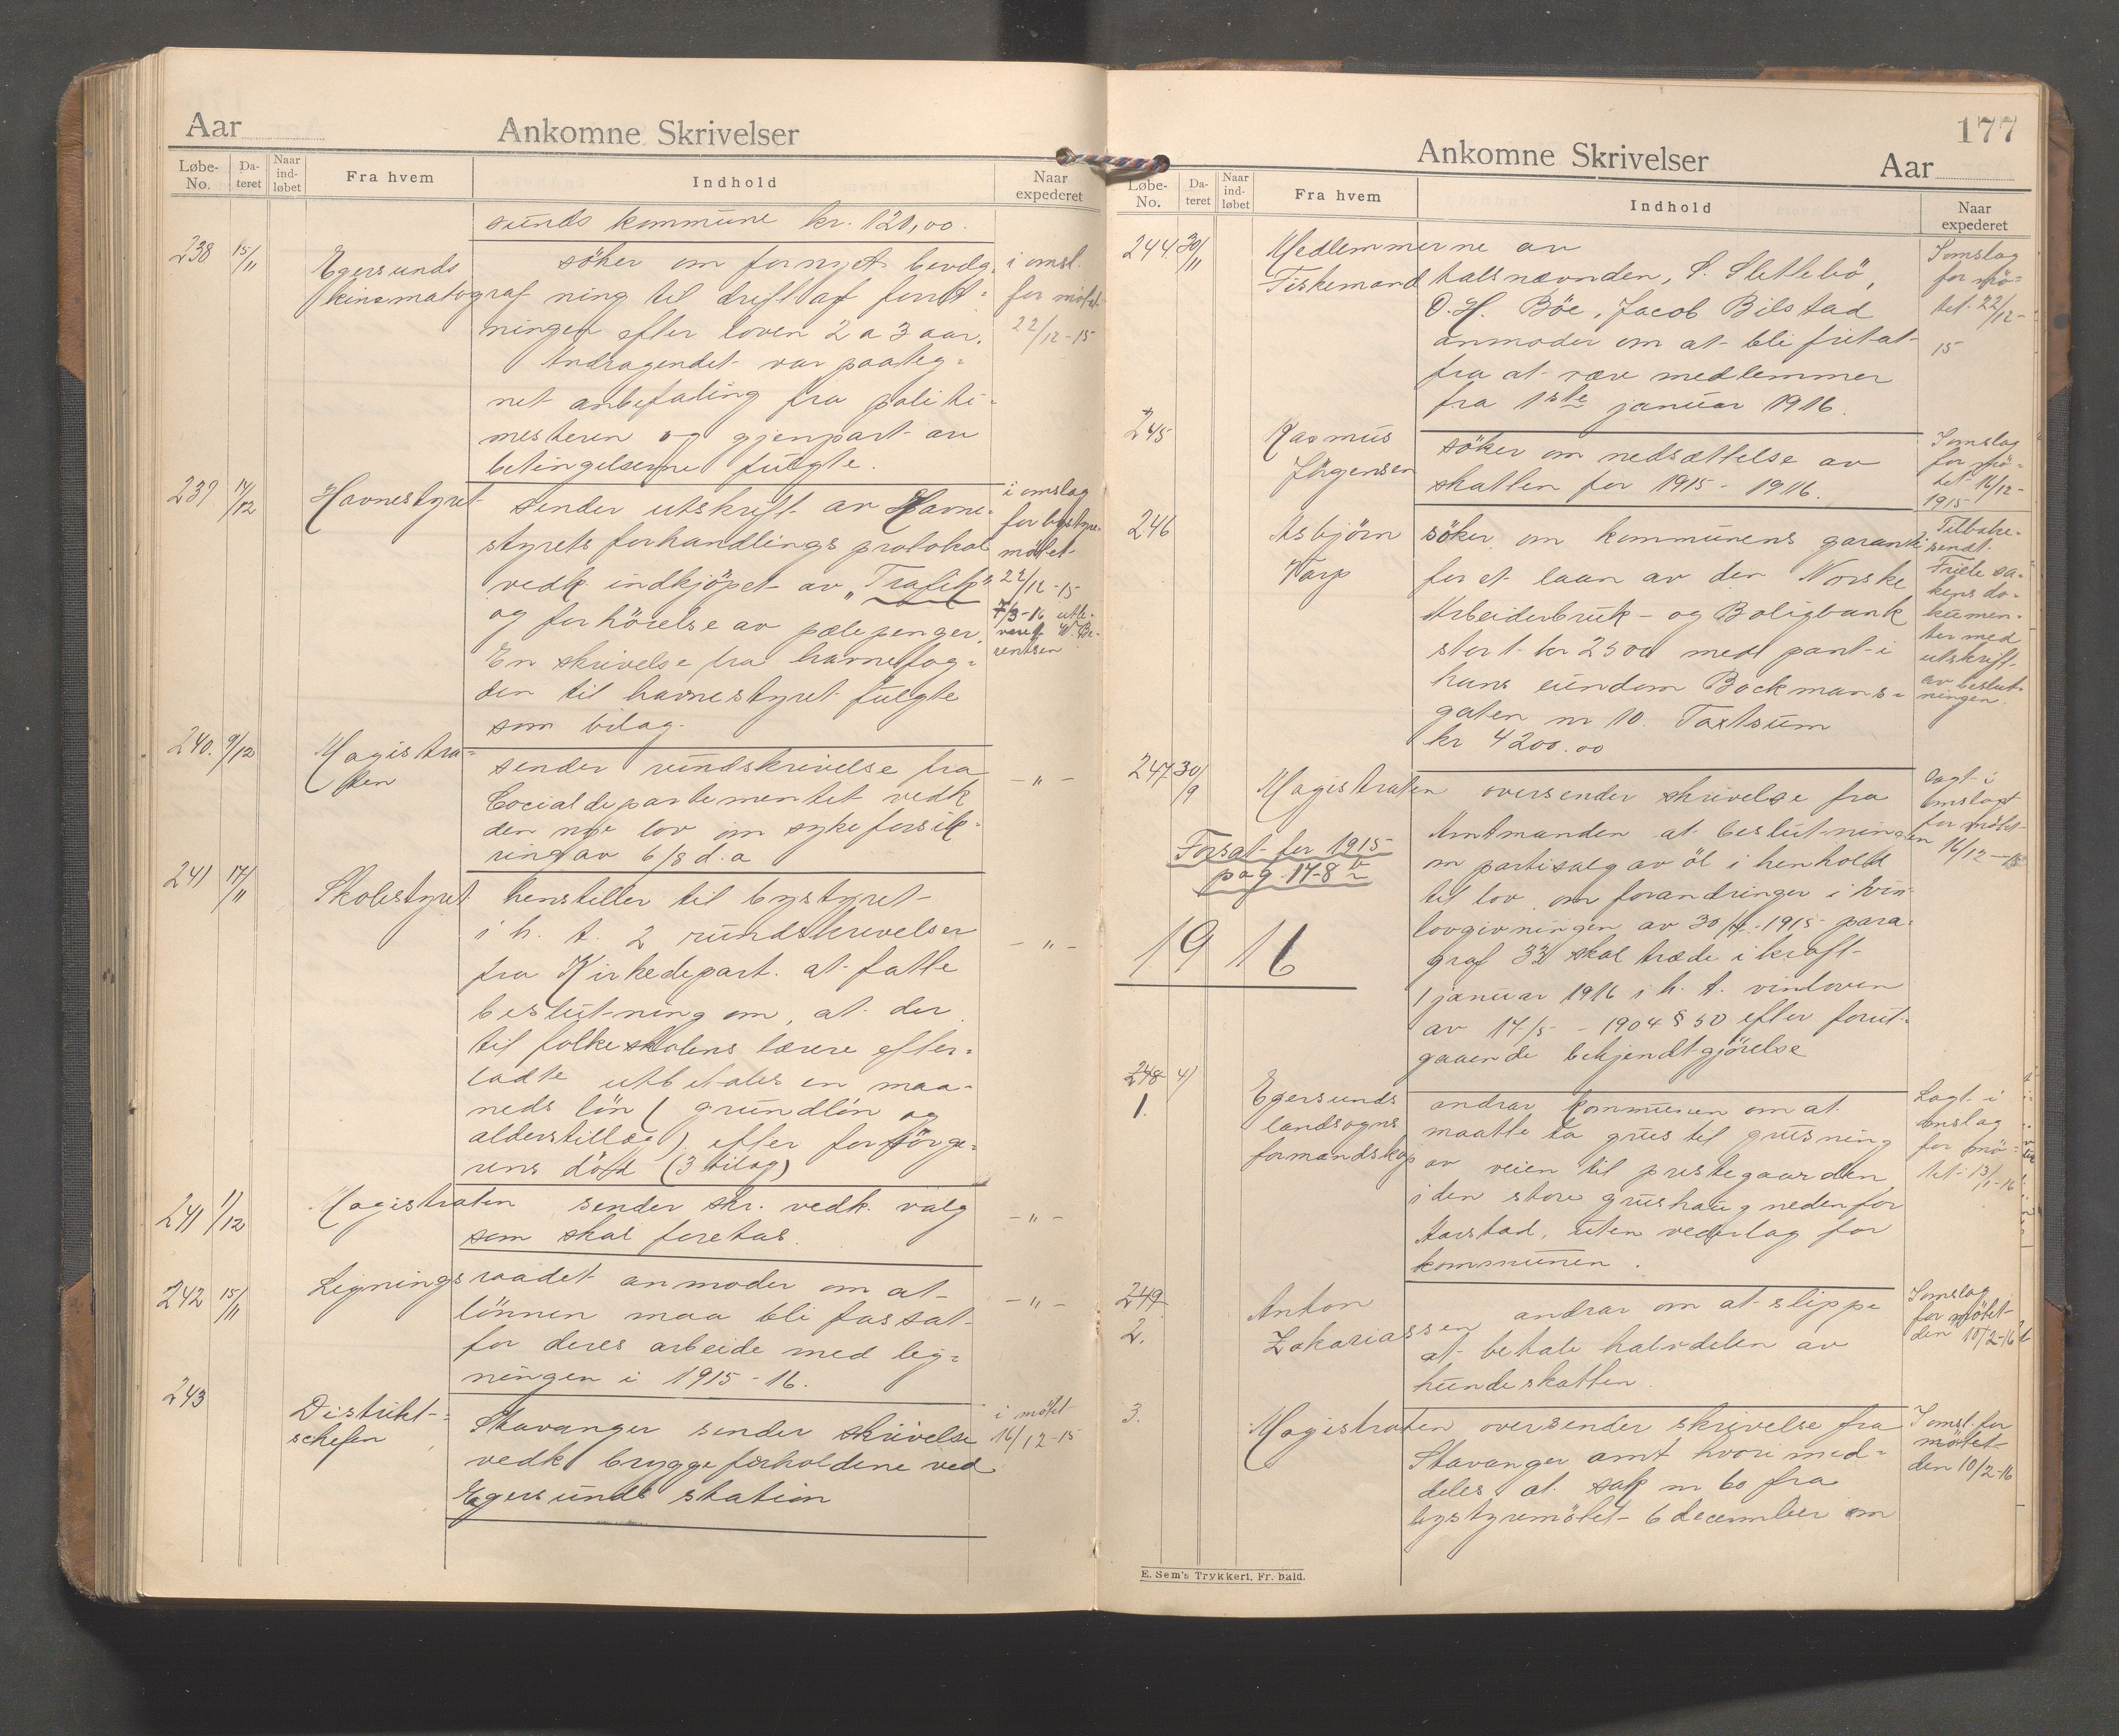 Aar
Ankomne Skrivelser
Løbe-No.
Dateret
Naar indløbet
Fra hvem
Indhold
Naar expederet
sunds kommune kr. 120,00.
238 15/11 Egersunds kinematograf
söker om fornyet bevilg-
ning til drift af forret-
ningen efter loven 2 a 3 aar.
Andragendet var paateg-
net anbefaling fra politi-
mesteren og gjenpart av
betingelserne fulgte.
i omsl.
for mötet
22/12-15
239 14/12 Havnestyret
sender utskrift av Havne-
styrets forhandlings protokol
vedk. indkjöpet av "Trafik"
og forhöielse av pælepenger.
En skrivelse fra havnefog-
den til havnestyret fulgte
som bilag.
i omslag
for bystyre-
mötet
22/12-15
7/3-16 utle-
vert W. Be-
rentsen
240. 9/12 Magistra-
ten
sender rundskrivelse fra
Socialdepartementet vedk
den nye lov om sykeforsik-
ring av 6/8 d.a
- " -
241 17/11 Skolestyret
henstiller til bystyret
i h. t. 2 rundskrivelser
fra Kirkedepart. at fatte
beslutning om, at der
til folkeskolens lærere efter-
ladte utbetales en maa-
neds lön (grundlön og
alderstillæg) efter forsörge-
rens död (3 bilag)
- " -
241 1/12 Magistraten
sender skr. vedk. valg
som skal foretas.
- " -
242 15/11 Ligningsraadet anmoder om at
lönnen maa bli fassat
for deres arbeide med lig-
ningen i 1915-16.
- " -
243 Distrikt-
schefen
Stavanger sender skrivelse
vedk bryggeforholdene ved
Egersunds station
i mötet
16/12-15
177
Ankomne Skrivelser
Aar
Løbe-No.
Dateret
Naar indløbet
Fra hvem
Indhold
Naar expederet
244 30/11 Medlemmerne av
Fiskemandtalsnævnden, S. Slettebö,
O. H. Böe, Jacob Bilstad
anmoder om at bli fritat
fra at være medlemmer
fra 1ste januar 1916.
I omslag
for mö-
tet 22/12-
15
245 Rasmus
Jörgensen
söker om nedsættelse av
skatten for 1915-1916.
I omslag
for mö-
tet 16/12-
1915
246 Asbjörn
Varp
söker om kommunens garanti
for et laan av den Norske
Arbeiderbruk- og Boligbank
stort kr 2500 med pant i
hans eiendom Bockmans-
gaten nr 10. Taxtsum
kr 4200.00
Tilbake-
sendt
sa-
kens do-
kumen-
ter med
utskrift
av beslut-
ningen.
247 30/9 Magistraten oversender skrivelse fra
Amtmanden at beslutningen
om partisalg av öl i henhold
til lov om forandringer i vin-
lovgivningen av 30/7-1915 para-
graf 33 skal træde i kraft
1 januar 1916 i h. t. vinloven
av 17/5-1904 § 50 efter forut-
gaaende bekjendtgjörelse
lagt i
omslag
for mötet
16/12-15
Forsat for 1915
pag. 178
1916
248 4/
1.
Egersunds
landsogns
formandskap
andrar kommunen om at
maatte ta grus til grusning
av veien til prestegaarden
i den store grushaug nedenfor
Aarstad, uten vederlag for
kommunen.
Lagt i
omslag
for mö-
tet 13/1-16
249
2.
Anton
Zakariassen
andrar om at slippe
at betale halvdelen av
hundeskatten.
I omslag
for mötet
den 10/2-16
3. Magistraten oversender skrivelse fra
Stavanger amt hvori med-
deles at sak nr 60 fra
bystyremötet 6 december om
I omsl. for
mötet
den 10/2-16
E. Sem's Trykkeri, Fr. hald.